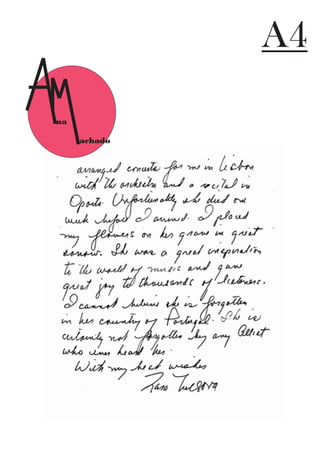 A4
AM
na
achado
arranged concerts for me in Lisbon
with the orchestra and a recital in
Oporto. Unfortunately she died one
week before I arrived. I placed
my flowers on her grave in great
sorrow. She was a great inspiration
to the world of music and gave
great joy to thousands of listeners.
I cannot believe she is forgotten
in her country of Portugal. She is
certainly not forgotten by any Cellist
who ever heard her.
With my best wishes
Zara Nelsova